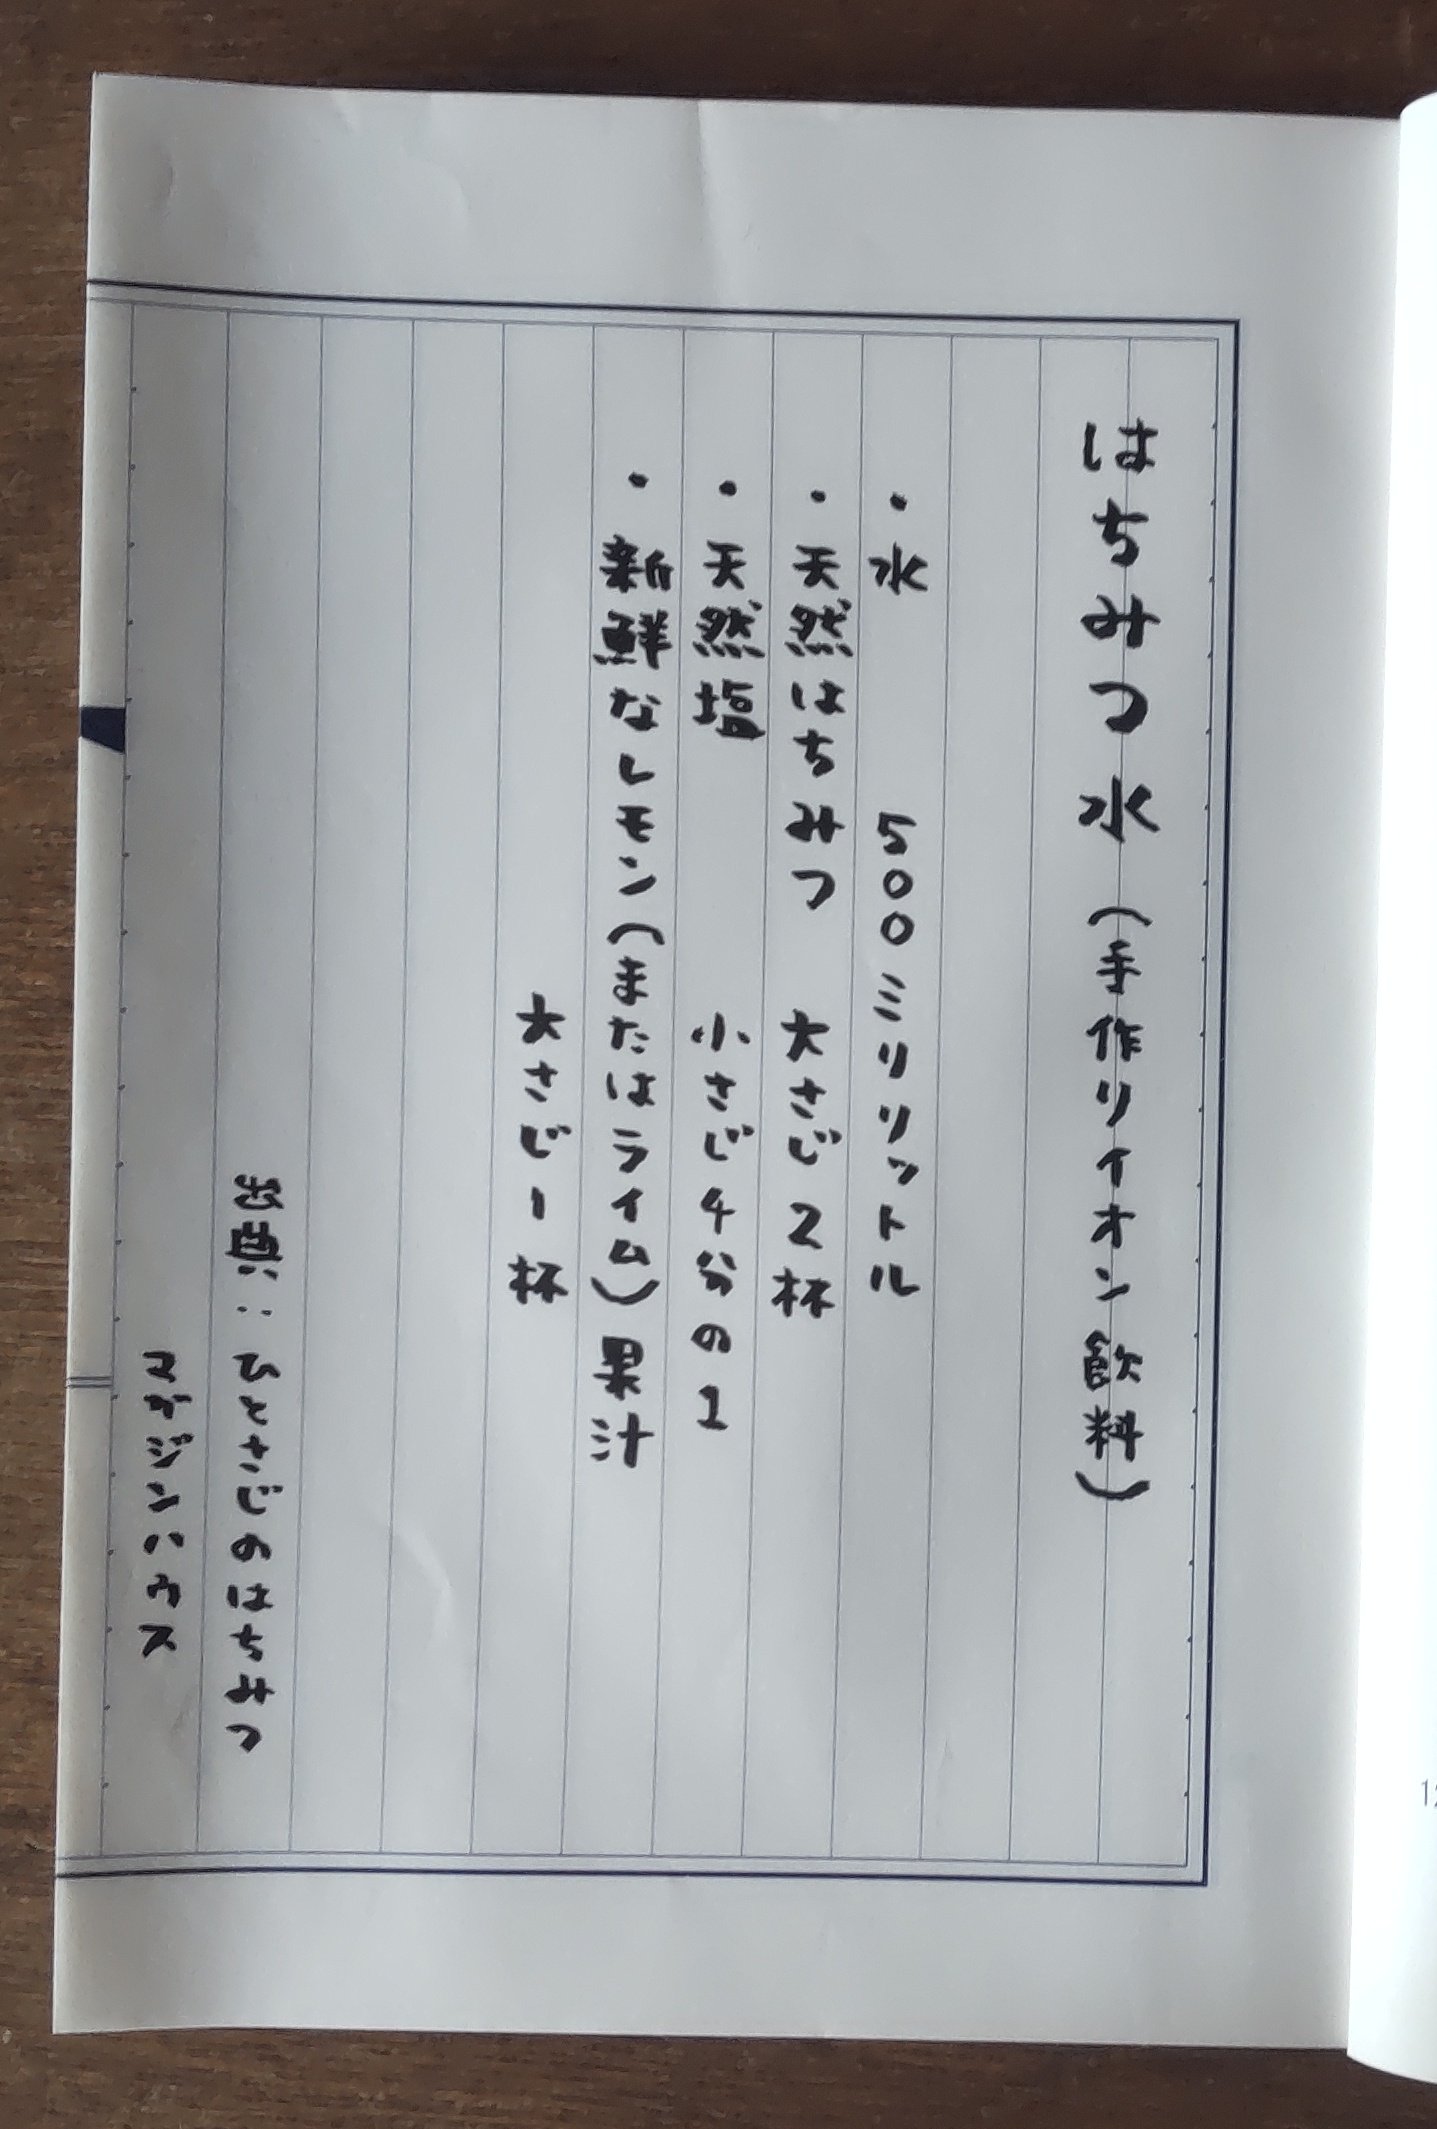 はちみつ水(手作りイオン飲料)
・水 500ミリリットル
・天然はちみつ 大さじ2杯
・天然塩 小さじ4分の1
・新鮮なレモン(またはライム)果汁
大さじ1杯
:ひとさじのはちみつ
マガジンハウス